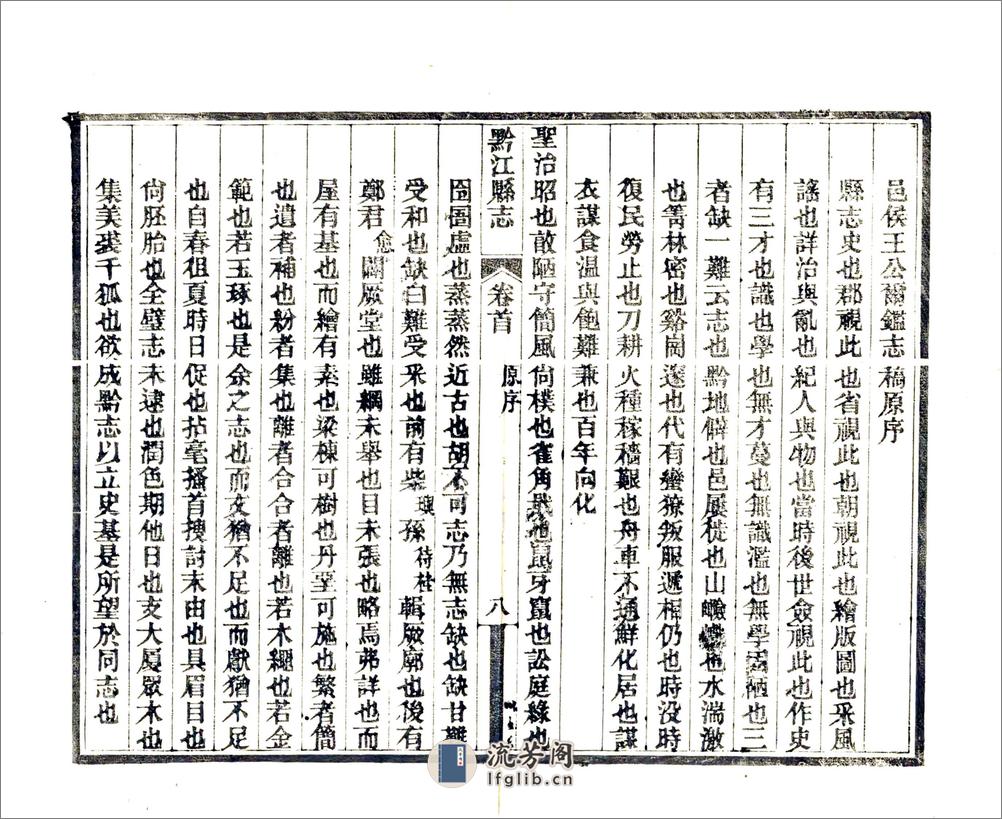 邑侯王公爾鑑志稿原序
縣志史也郡視此也省視此也朝視此也繪版圖也采風
謠也詳治與亂也紀人與物也當時後世僉視此也作史
有三才也識也學也無才蔓也無識濫也無學陋也三
者缺一難云志也黔地僻也邑屢徙也山也水湍激
也箐林密也谿峒邃也代有蠻獠叛服遞相仍也時没時
復民勞止也刀耕火種稼穡艱也舟車不通鮮化居也謀
衣謀食温與飽難兼也百年向化
聖治昭也敢陋守簡風尚樸也雀角鼠牙竄也訟庭綠也
黔江縣志 卷首 原序 八
囹圄虛也蒸蒸然近古也胡不可志乃無志缺也缺甘難
受和也缺白難受采也前有柴璸孫待桂輯厥廓也後有
鄭君愈闢厥堂也雖綱未舉也目未張也略焉弗詳也而
屋有基也而繪有素也梁棟可樹也丹堊可施也繁者簡
也遺者補也粉者集也離者合合者離也若木繩也若金
範也若玉琢也是余之志也而文猶不足也而獻猶不足
也自春徂夏時日促也拈毫搔首捜討末由也具眉目也
尚胚胎也全璧志未逮也潤色期他日也支大厦眾木也
集美裘千狐也欲成黔志以立史基是所望於同志也
流芳阁
lfglib.cn